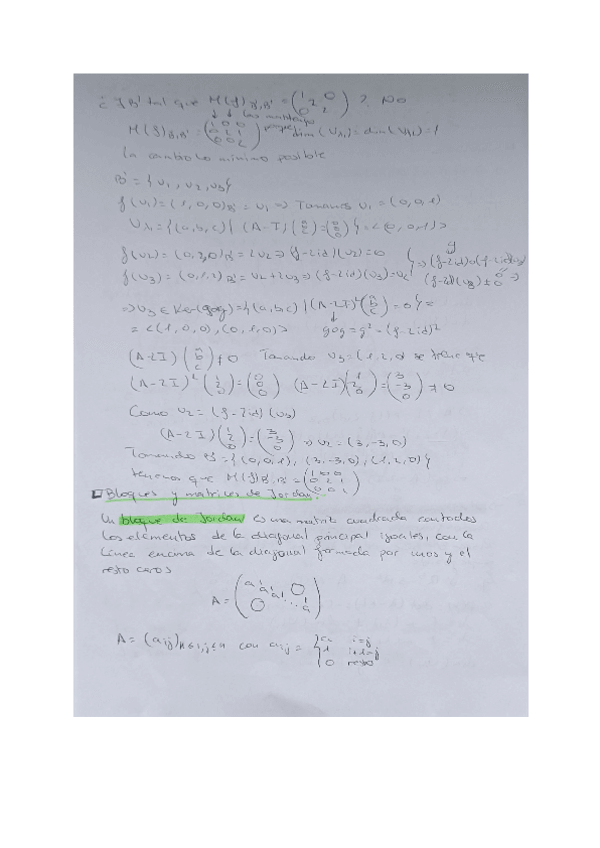 ¿ ∃ B' tal que M(f)B',B' = (1 2 0 / 0 2) ? No
M(f)B',B' = (1 0 0 / 0 2 1 / 0 0 2) porque dim(Vλ1) = dim(Vλ2) = 1
Lo cambio lo mínimo posible
B' = {v1, v2, v3}
f(v1) = (1,0,0)B' = v1 ⇒ Tomamos v1 = (0,0,1)
Vλ1 = {(a,b,c) | (A-I)(a b c) = (0 0 0)} = <(0,0,1)>
f(v2) = (0,2,0)B' = 2v2 ⇒ (f-2id)(v2) = 0
f(v3) = (0,1,2)B' = v2 + 2v3 ⇒ (f-2id)(v3) = v2
⇒ v3 ∈ Ker(g∘g) = {(a,b,c) | (A-2I)²(a b c) = 0} =
= <(1,0,0), (0,1,0)> g∘g = g² = (f-2id)²
(A-2I)(a b c) ≠ 0 Tomando v3 = (1,2,0) se tiene que
(A-2I)²(1 2 0) = (0 0 0) (A-2I)(1 2 0) = (3 -3 0) ≠ 0
Como v2 = (f-2id)(v3)
(A-2I)(1 2 0) = (3 -3 0) ⇒ v2 = (3,-3,0)
Tomando B' = {(0,0,1), (3,-3,0), (1,2,0)}
tenemos que M(f)B',B' = (1 0 0 / 0 2 1 / 0 0 2)
Bloques y matrices de Jordan:
Un bloque de Jordan es una matriz cuadrada con todos
los elementos de la diagonal principal iguales, con la
línea encima de la diagonal formada por unos y el
resto ceros
A = (a 1 a 1 a 1 0 / 0 ... 1 a)
A = (aij) con aij = { a i=j
1 i+1=j
0 resto